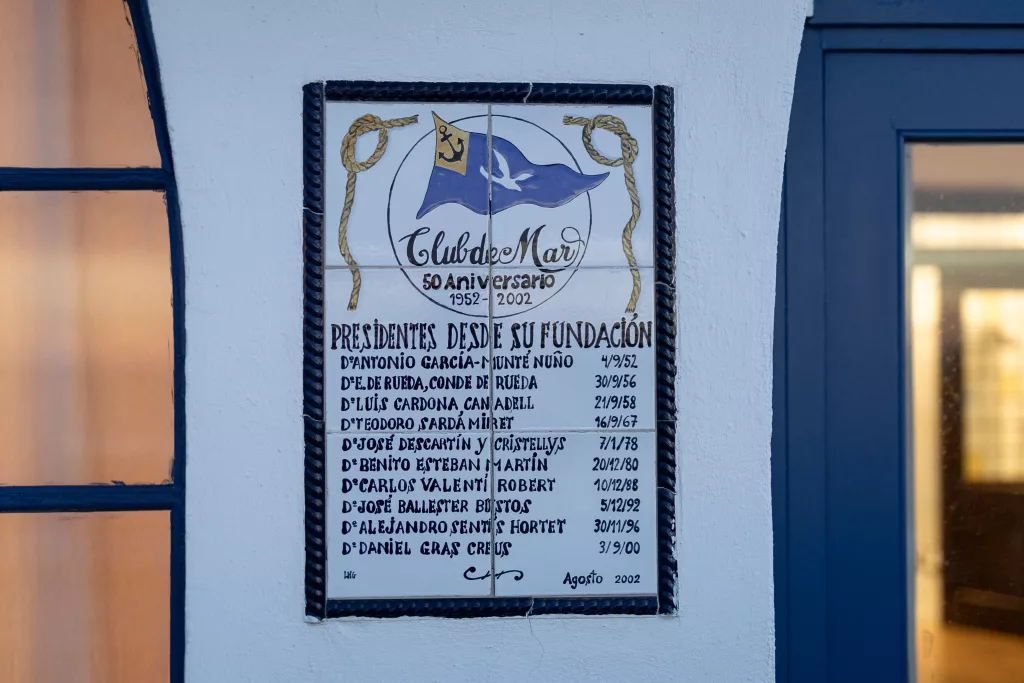 Club de Mar
50 Aniversario
1952-2002
PRESIDENTES DESDE SU FUNDACIÓN
Dº ANTONIO GARCÍA-MUNTÉ NUÑO 4/9/52
Dº E. DE RUEDA, CONDE DE RUEDA 30/9/56
Dº LUIS CARDONA CANADELL 21/9/58
Dº TEODORO SARDÁ MIRET 16/9/67
Dº JOSÉ DESCARTÍN Y CRISTELLYS 7/1/78
Dº BENITO ESTEBAN MARTÍN 20/12/80
Dº CARLOS VALENTÍ ROBERT 10/12/88
Dº JOSÉ BALLESTER BUSTOS 5/12/92
Dº ALEJANDRO SENTÍS HORTET 30/11/96
Dº DANIEL GRAS CREUS 3/9/00
Agosto 2002